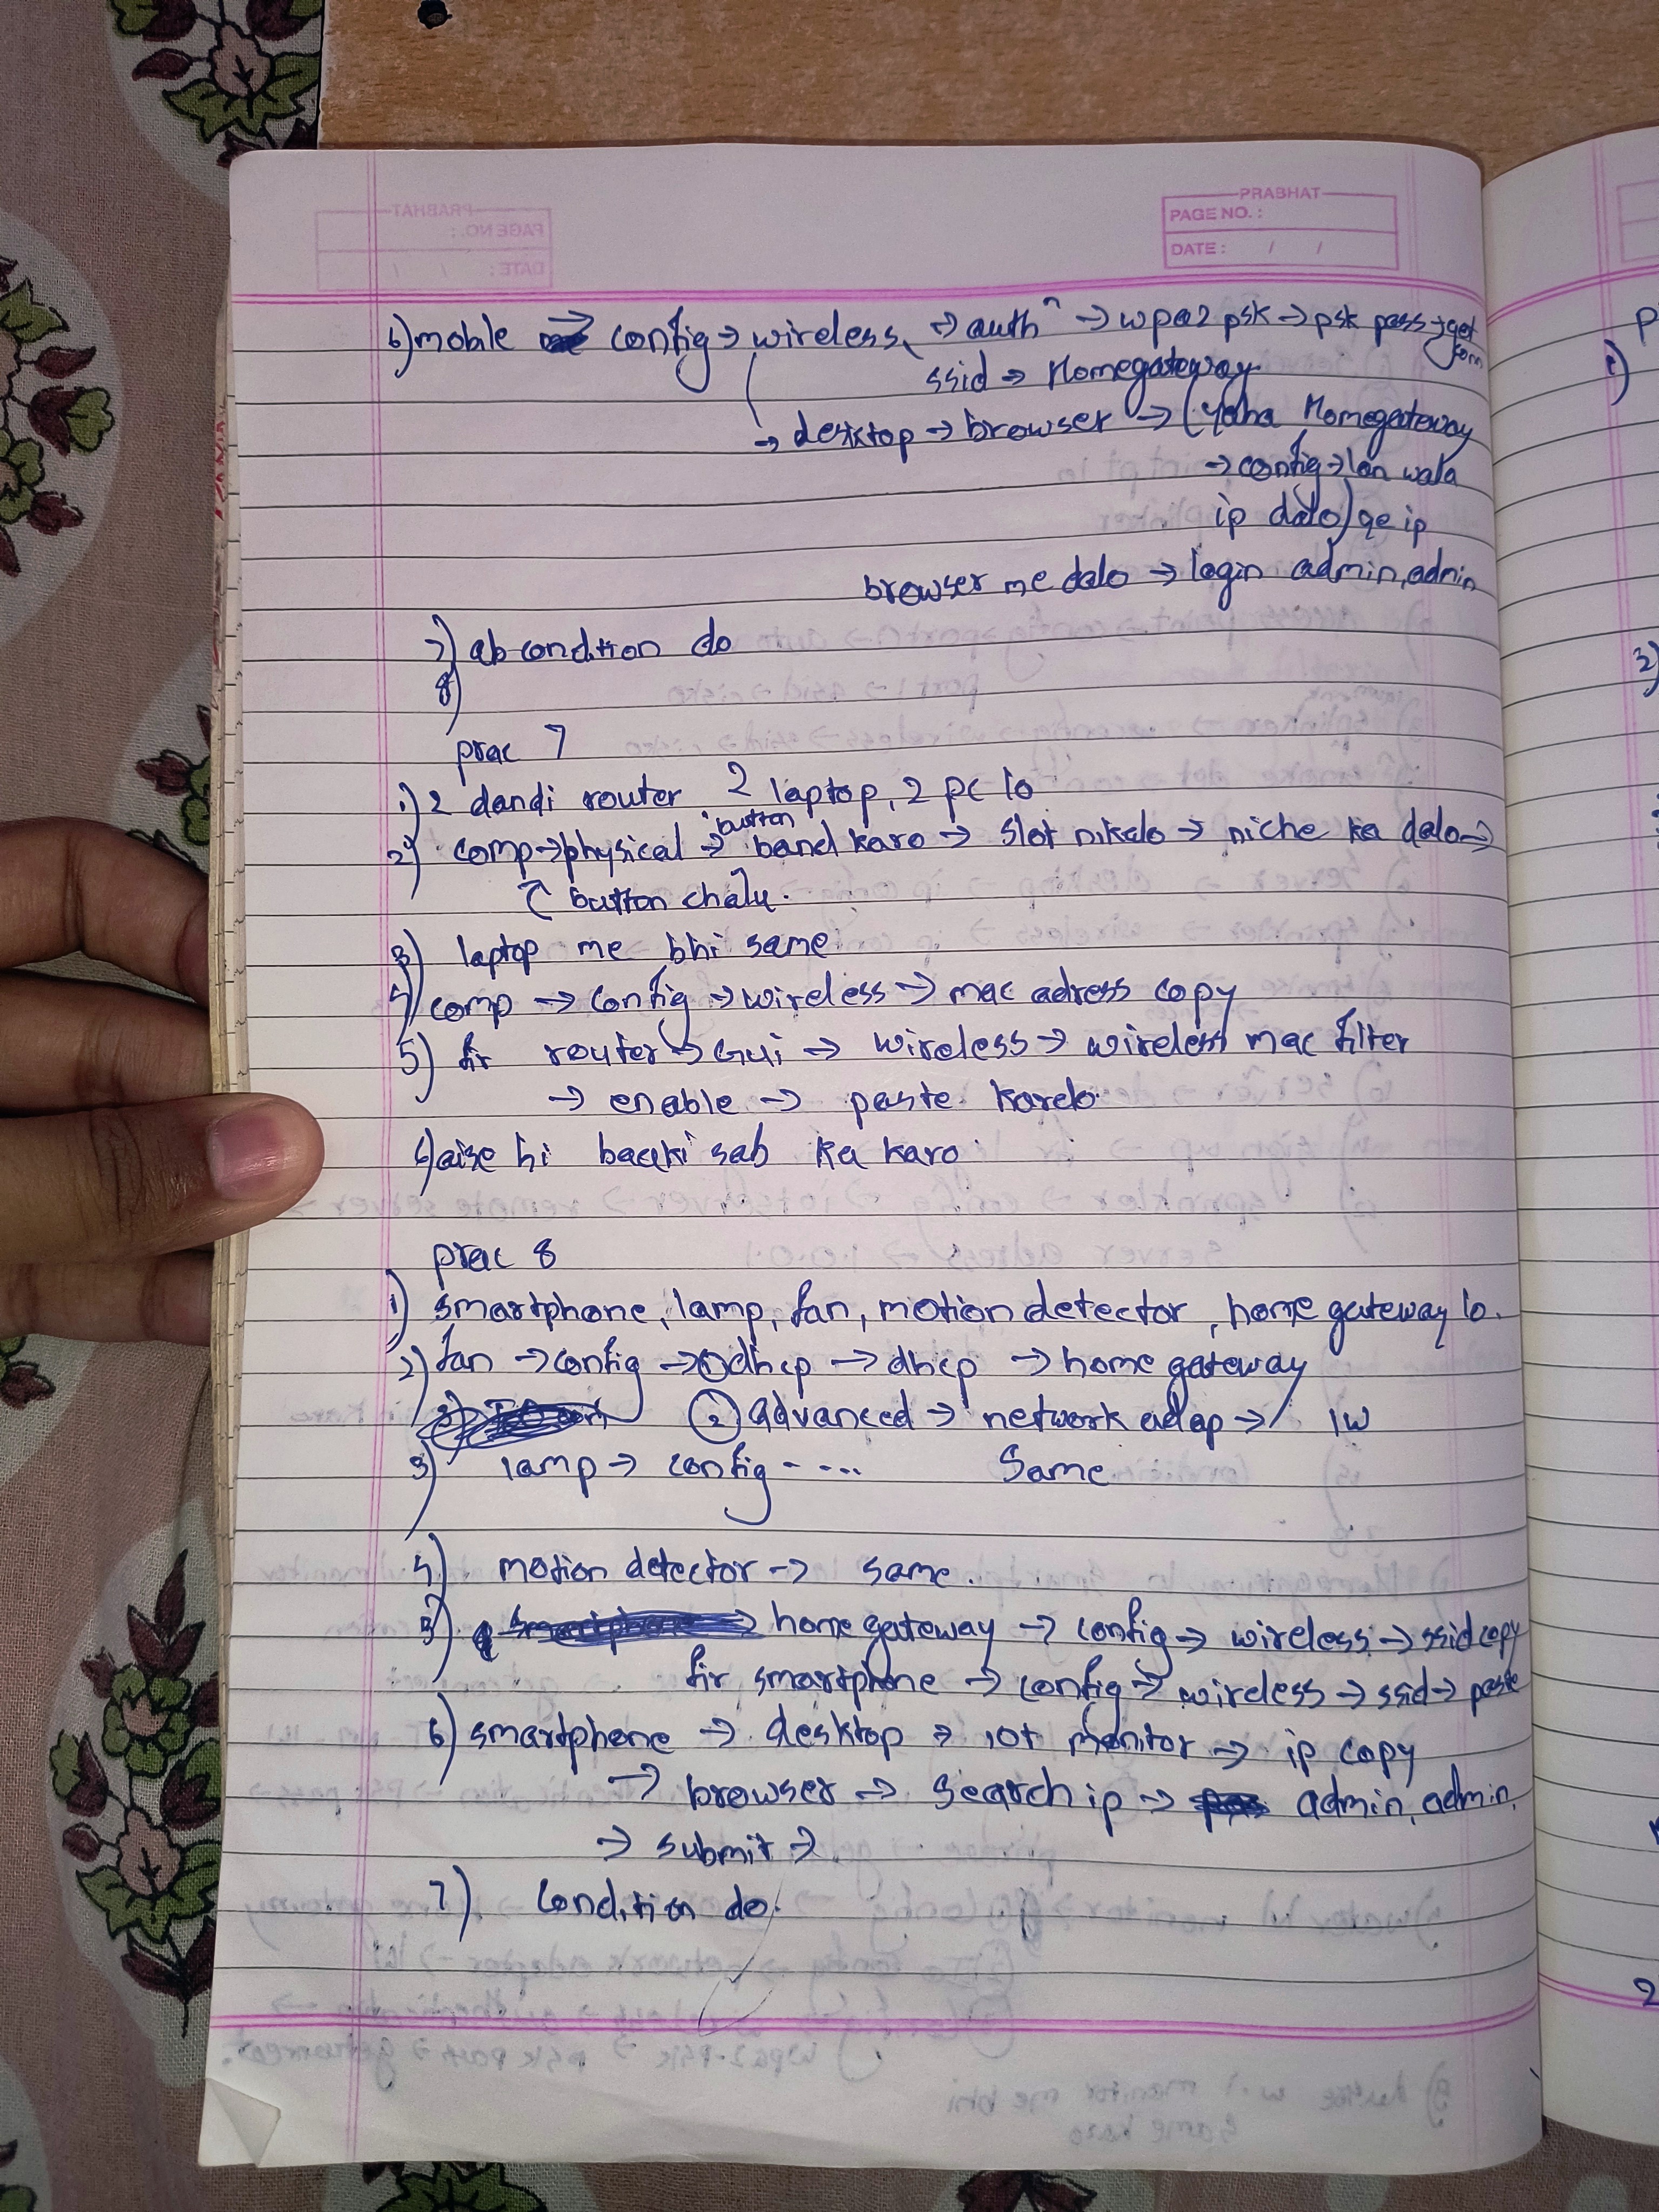 PRABHAT
PAGE NO. :
DATE : / /
6) mobile → config → wireless → authn → wpa2 psk → psk pass → get conn
ssid → Homegateway
→ desktop → browser → (yaha Homegateway
→ config → lan wala
ip dalo) ye ip
browser me dalo → login admin, admin
7) ab condition do
8)
prac 7
1) 2 dandi router 2 laptop, 2 pc lo
2) comp → physical → button band karo → slot nikalo → niche ka dalo →
button chalu.
3) laptop me bhi same
4) comp → config → wireless → mac adress copy
5) fir router → GUI → wireless → wireless mac filter
→ enable → paste karelo
6) aise hi baaki sab ka karo
prac 8
1) smartphone, lamp, fan, motion detector, home gateway lo.
2) fan → config → ① dhcp → dhcp → home gateway
② advanced → network adap → 1w
3) lamp → config - - ... Same
4) motion detector → same.
5) home gateway → config → wireless → ssid copy
fir smartphone → config → wireless → ssid → paste
6) smartphone → desktop → iot monitor → ip copy
→ browser → search ip → admin, admin,
→ submit →
7) Condition do.